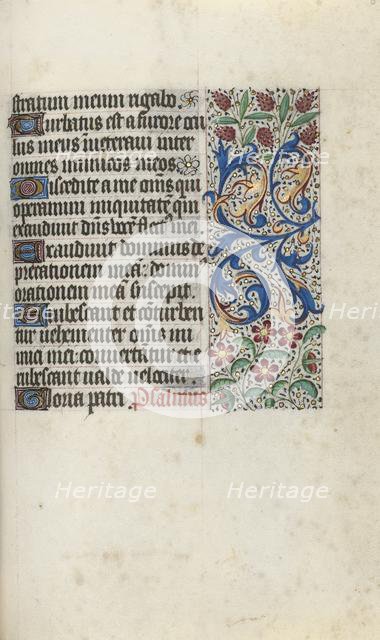 stratum meum rigabo
Turbatus est a furore ocu
lus meus inveteravi inter
omnes inimicos meos
Discedite a me omnes qui
operamini iniquitatem qm
exaudivit dns vocem
Exaudivit dominus de
precationem meam domin
orationem meam suscepit
Erubescant et conturben
tur vehementer omnes ini
mici mei convertantur et e
rubescant valde velociter
Gloria patri Psalmus
Heritage Heritage
Heritage Heritage
Heritage Heritage